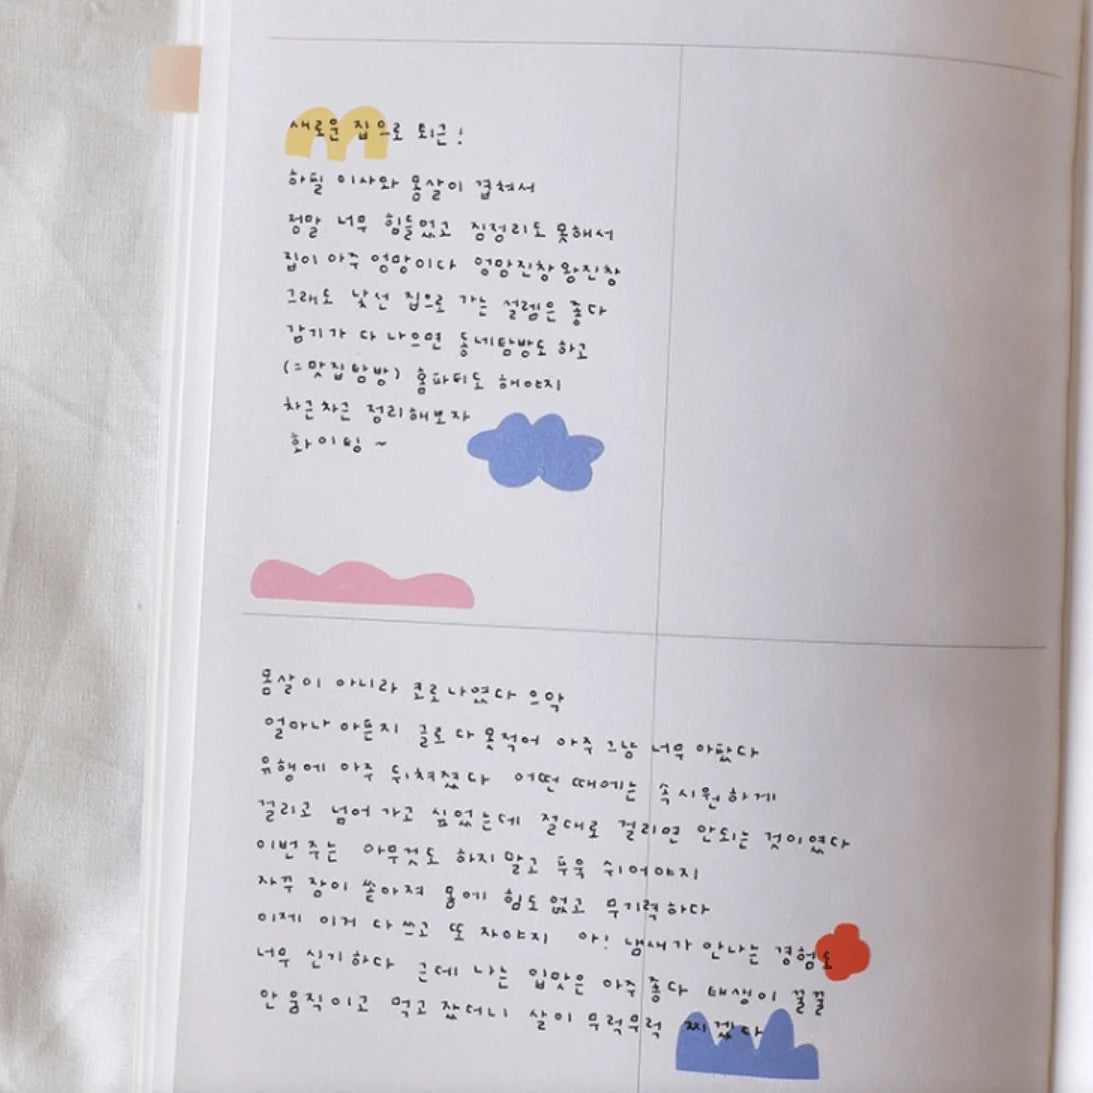 새로운 집으로 퇴근!
하필 이사와 몸살이 겹쳐서
정말 너무 힘들었고 짐정리도 못해서
집이 아주 엉망이다 엉망진창 왕진창
그래도 낯선 집으로 가는 설렘은 좋다
감기가 다 나으면 동네탐방도 하고
(=맛집탐방) 홈파티도 해야지
차근차근 정리해보자
화이팅~
몸살이 아니라 코로나였다 으악
얼마나 아픈지 글로 다 못적어 아주 그냥 너무 아팠다
유행에 아주 뒤쳐졌다 어떤 때에는 속시원하게
걸리고 넘어가고 싶었는데 절대로 걸리면 안되는 것이였다
이번주는 아무것도 하지말고 푸욱 쉬어야지
자꾸 잠이 쏟아져 몸에 힘도 없고 무기력하다
이제 이거 다 쓰고 또 자야지 아! 냄새가 안나는 경험도
너무 신기하다 근데 나는 입맛은 아주 좋다 태생이 꿀꿀
안 움직이고 먹고 잤더니 살이 무럭무럭 찌겠다